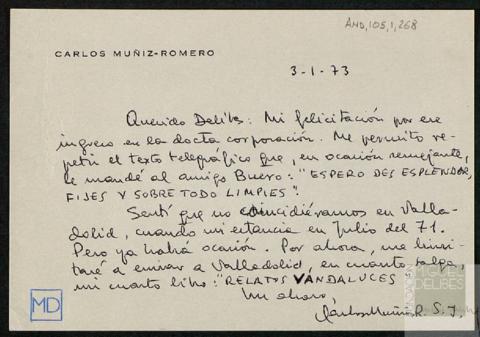 AMD, 105, 1, 268
CARLOS MUÑIZ-ROMERO
3-1-73
Querido Delibes: Mi felicitación por ese
ingreso en la docta corporación. Me permito re-
petir el texto telegráfico que, en ocasión semejante,
le mandé al amigo Buero: "ESPERO DES ESPLENDOR,
FIJES Y SOBRE TODO LIMPIES".
Sentí que no coincidiéramos en Valla-
dolid, cuando mi estancia en Julio del 71.
Pero ya habrá ocasión. Por ahora, me limi-
taré a enviar a Valladolid, en cuanto salga,
mi cuarto libro: "RELATOS VANDALUCES
Un abrazo,
Carlos Muñiz R. S. J.
MD
FUNDACIÓN
MIGUEL
DELIBES